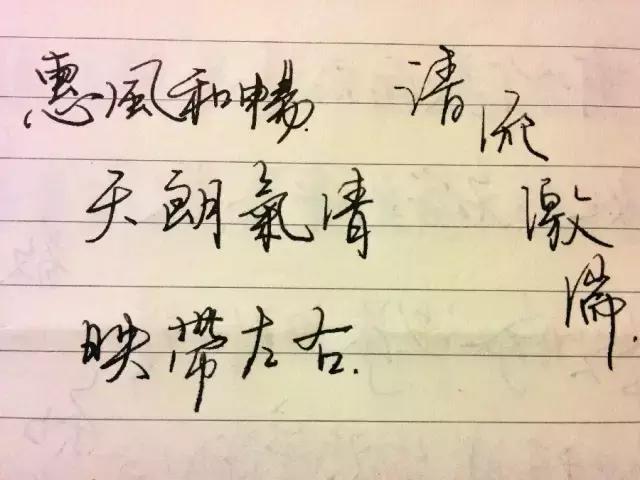 惠風和暢
清流激湍
天朗氣清
映帶左右